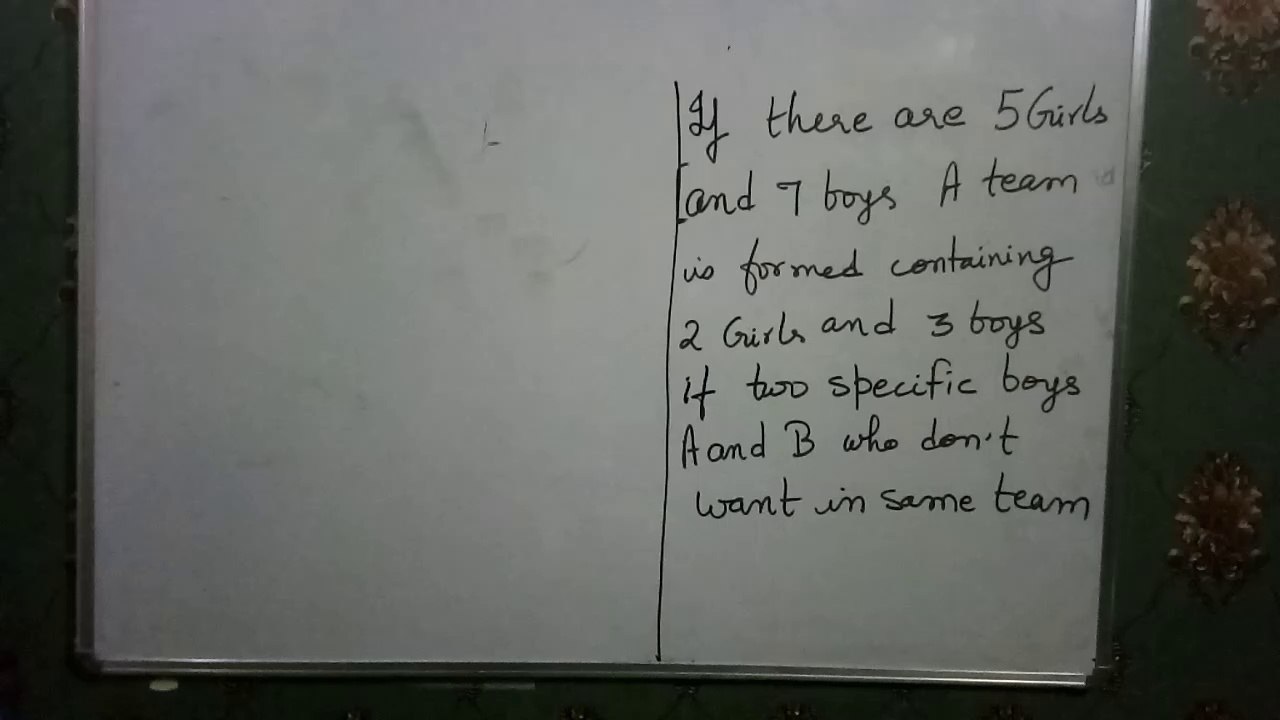 If there are 5 Girls
and 7 boys A team
is formed containing
2 Girls and 3 boys
if two specific boys
A and B who don't
want in same team